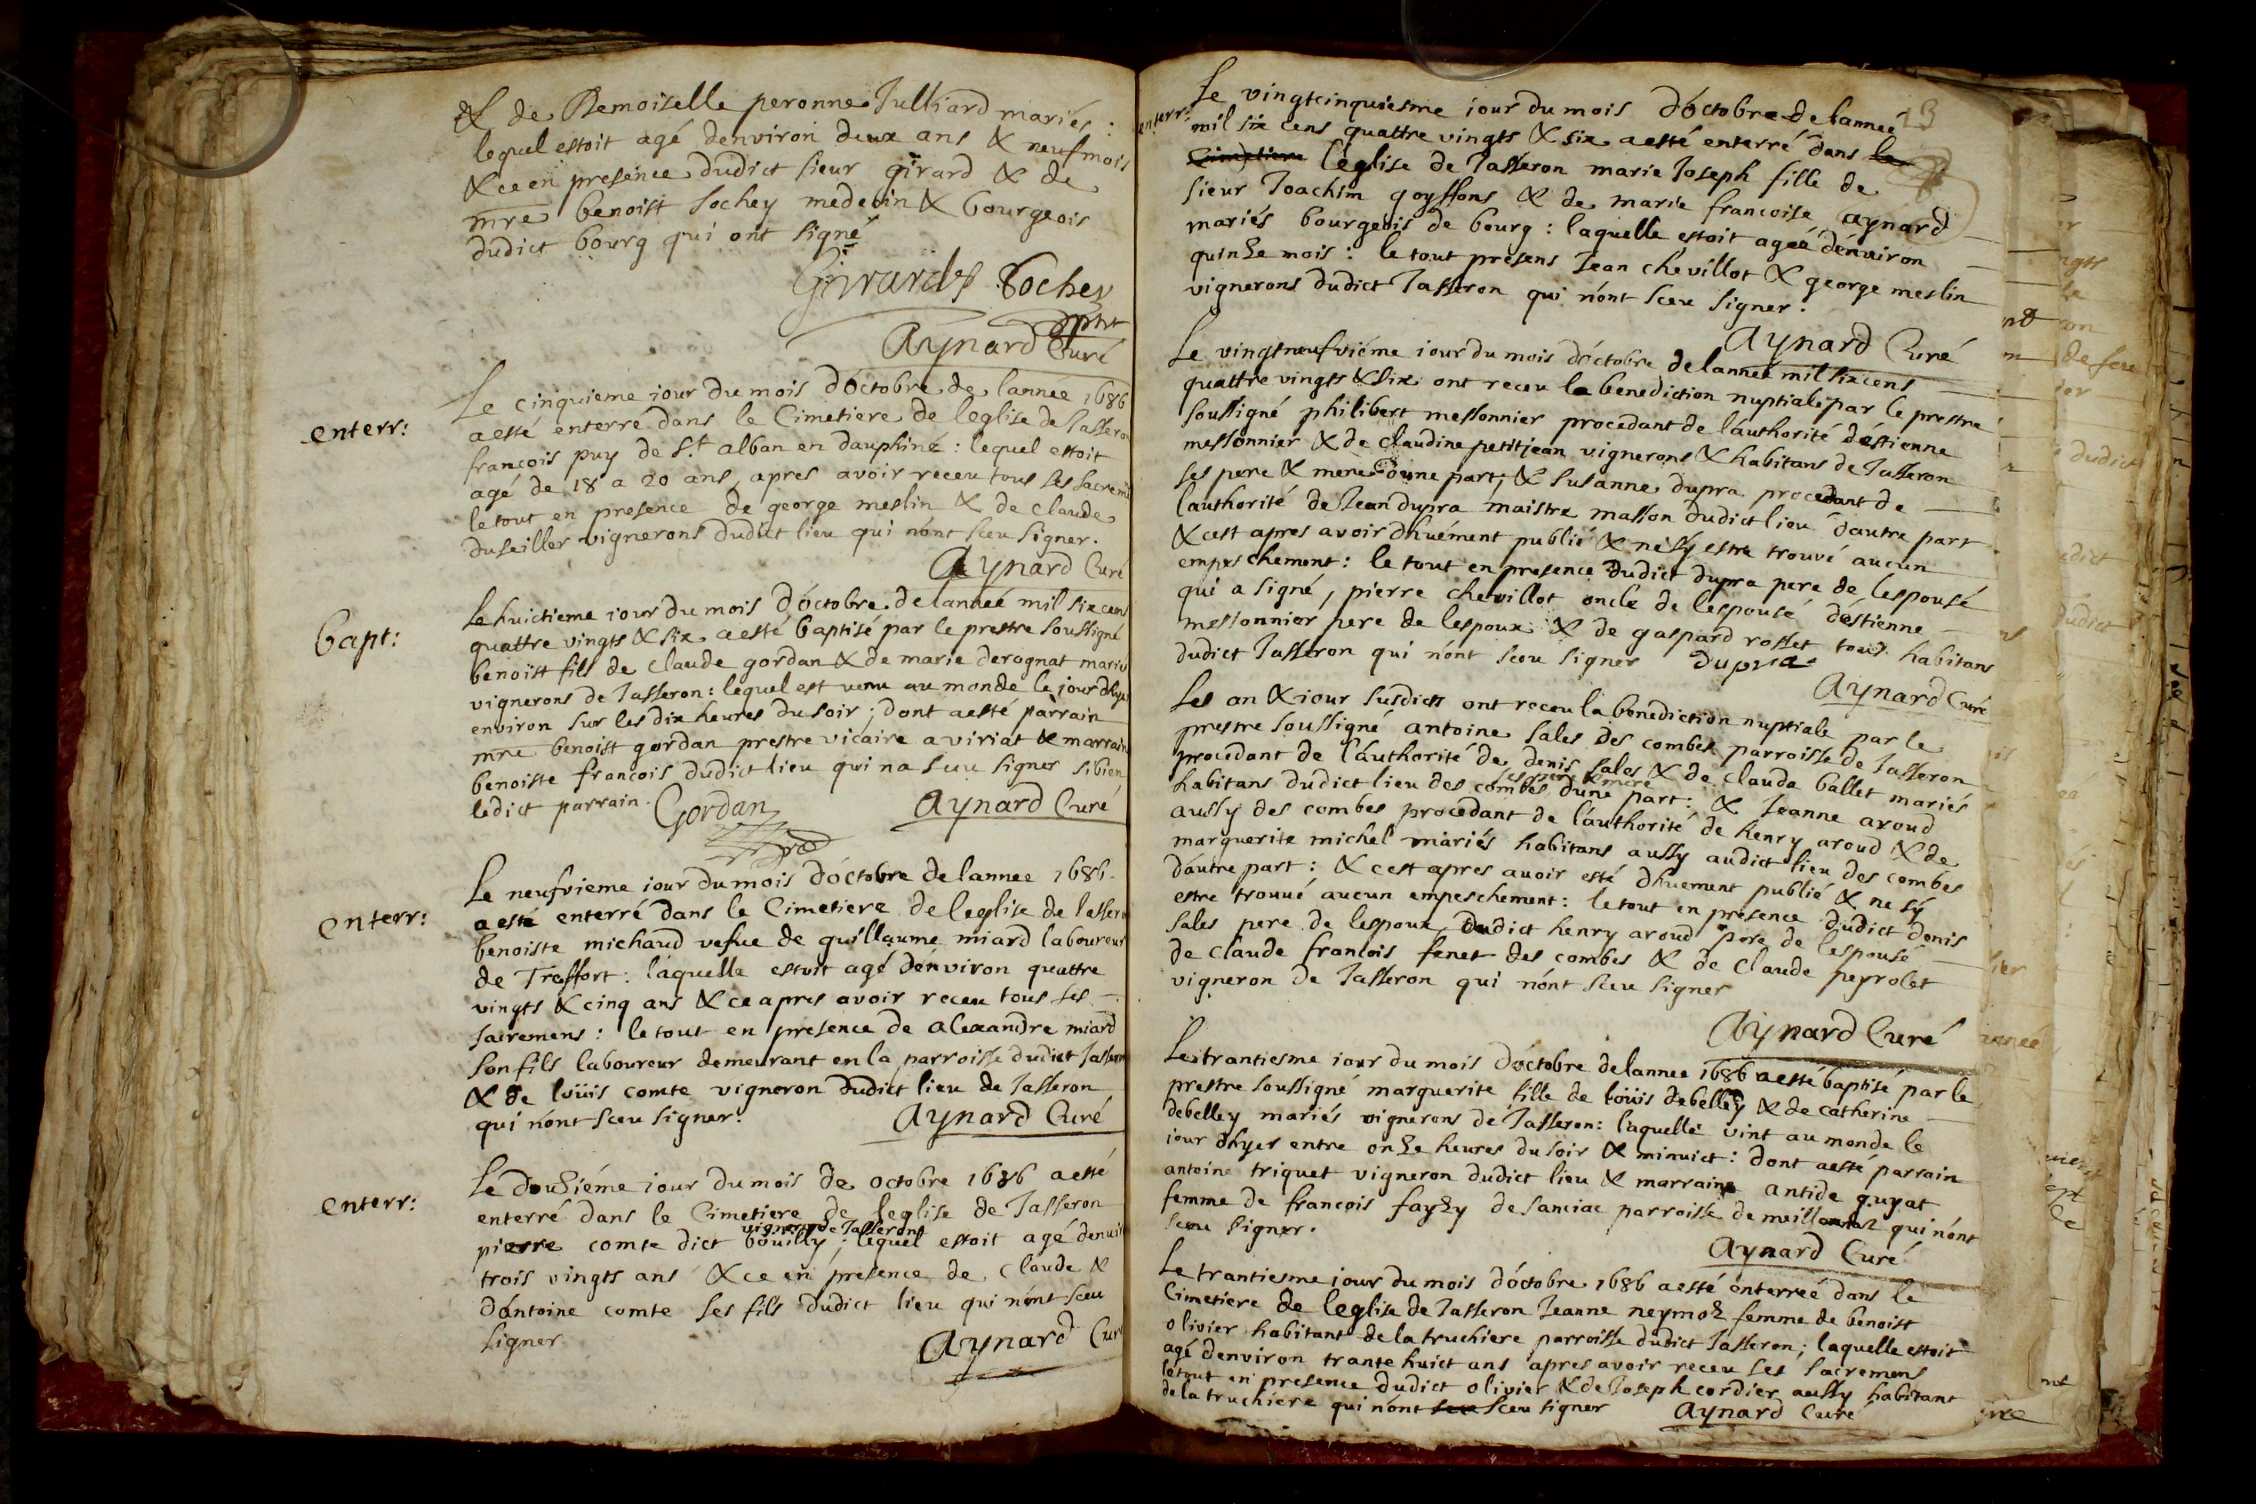 & de Demoiselle peronne Julliard mariés :
lequel estoit agé denviron deux ans & neuf mois
& ce en presence dudict sieur girard & de
mre benoist sochey medecin & bourgeois
dudict bourg qui ont signé
Girard Sochey
Aynard Curé
enterr:
Le cinquieme jour du mois d'óctobre de lannee 1686
a esté enterré dans le Cimetiere de leglise de Jasseron
françois puy de St alban en dauphiné : lequel estoit
agé de 18 a 20 ans, apres avoir receu tous ses sacremens
le tout en presence de george meslin & de claude
duseiller vignerons dudict lieu qui n'ont sceu signer.
Aynard Curé
bapt:
Le huictieme iour du mois d'óctobre de lanneé mil six cens
quattre vingts & six a esté baptisé par le prestre soussigné
benoist fils de claude gordan & de marie deragnat mariés
vignerons de Jasseron : lequel est venu au monde le jour dhyer
environ sur les dix heures du soir ; dont a esté parrain
mre benoist gordan prestre vicaire a viriat & marraine
benoiste françois dudict lieu qui na sceu signer si bien
ledict parrain. Gordan
Aynard Curé
enterr:
Le neufvieme iour du mois d'óctobre de lannee 1686.
a esté enterré dans le Cimetiere de leglise de Jasseron
benoiste michaud vefue de guillaume miard laboureur
de Treffort : laquelle estoit agé denviron quattre
vingts & cinq ans & ce apres avoir receu tous ses
sacremens : le tout en presence de alexandre miard
son fils laboureur demeurant en la parroisse dudict Jasseron
& de loüis comte vigneron dudict lieu de Jasseron
qui n'ont sceu signer.
Aynard Curé
enterr:
Le douziéme iour du mois de octobre 1686 a esté
enterré dans le Cimetiere de leglise de Jasseron
vigneron de Jasseron
pierre comte dict bouilly ; lequel estoit agé denviron
trois vingts ans & ce en presence de claude &
d'antoine comte ses fils dudict lieu qui n'ont sceu
signer
Aynard Curé
13
enterr:
Le vingtcinquiesme iour du mois d'óctobre de lanneé
mil six cens quattre vingts & six a esté enterré dans le
Cimetiere l'église de Jasseron marie Joseph fille de
sieur Joachim goyffons & de marie francoise aynard
mariés bourgeois de bourg : laquelle estoit ageé denviron
quinze mois : le tout presens Jean chevillot & george meslin
vignerons dudict Jasseron qui n'ont sceu signer.
Aynard Curé
Le vingtneufviéme iour du mois d'óctobre de lanneé mil six cens
quattre vingts & six ont receu la benediction nuptiale par le prestre
soussigné philibert messonnier procedant de láuthorité d'éstienne
messonnier & de claudine petitjean vignerons & habitans de Jasseron
ses pere & mere d'une part, & susanne dupra procedant de
lauthorité de Jean dupra maistre masson dudict lieu dautre part
& cest apres avoir dhuément publié & ne sy estre trouvé aucun
empeschement : le tout en presence dudict dupra pere de lespousé
qui a signé, pierre chevillot oncle de lespousé d'éstienne
messonnier pere de lespoux & de gaspard rosset tous habitans
dudict Jasseron qui n'ont sceu signer dupra
Aynard Curé
Les an & iour susdicts ont receu la benediction nuptiale par le
prestre soussigné antoine sales des combes parroisse de Jasseron
procedant de láuthorité de denis sales & de claude ballet mariés
ses pere & mere
habitans dudict lieu des combes dune part : & Jeanne aroud
aussy des combes procedant de láuthorité de henry aroud & de
marguerite michel mariés habitans aussy audict lieu des combes
dautre part : & cest apres avoir esté dhuement publié & ne sy
estre trouué aucun empeschement : le tout en presence dudict denis
sales pere de lespoux, dudict henry aroud pere de lespousé
de claude françois fenet des combes & de claude peyrolet
vigneron de Jasseron qui n'ont sceu signer
Aynard Curé
Le trantiesme iour du mois d'óctobre de lannee 1686 a esté baptisé par le
prestre soussigné marguerite fille de loüis debelley & de catherine
debelley mariés vignerons de Jasseron : laquelle vint au monde le
iour dhyer entre onze heures du soir & minuict : dont a esté parrain
antoine triquet vigneron dudict lieu & marraine antide guyat
femme de françois fayzy de sanciac parroisse de meillonnaz qui n'ont
sceu signer.
Aynard Curé
Le trantiesme iour du mois d'óctobre 1686 a esté enterreé dans le
Cimetiere de leglise de Jasseron Jeanne neymoz femme de benoist
olivier habitant de la truchiere parroisse dudict Jasseron ; laquelle estoit
agé denviron trante huict ans apres avoir receu ses sacremens
le tout en presence dudict olivier & de Joseph cordier aussy habitant
de la truchiere qui n'ont sceu signer Aynard Curé